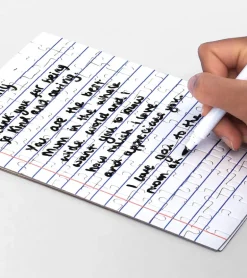 thank you for being
so kind and caring.
You are the best
mum in the whole
wide world and I
want you to know
how much I love
and appreciate you.
I love you to the
moon